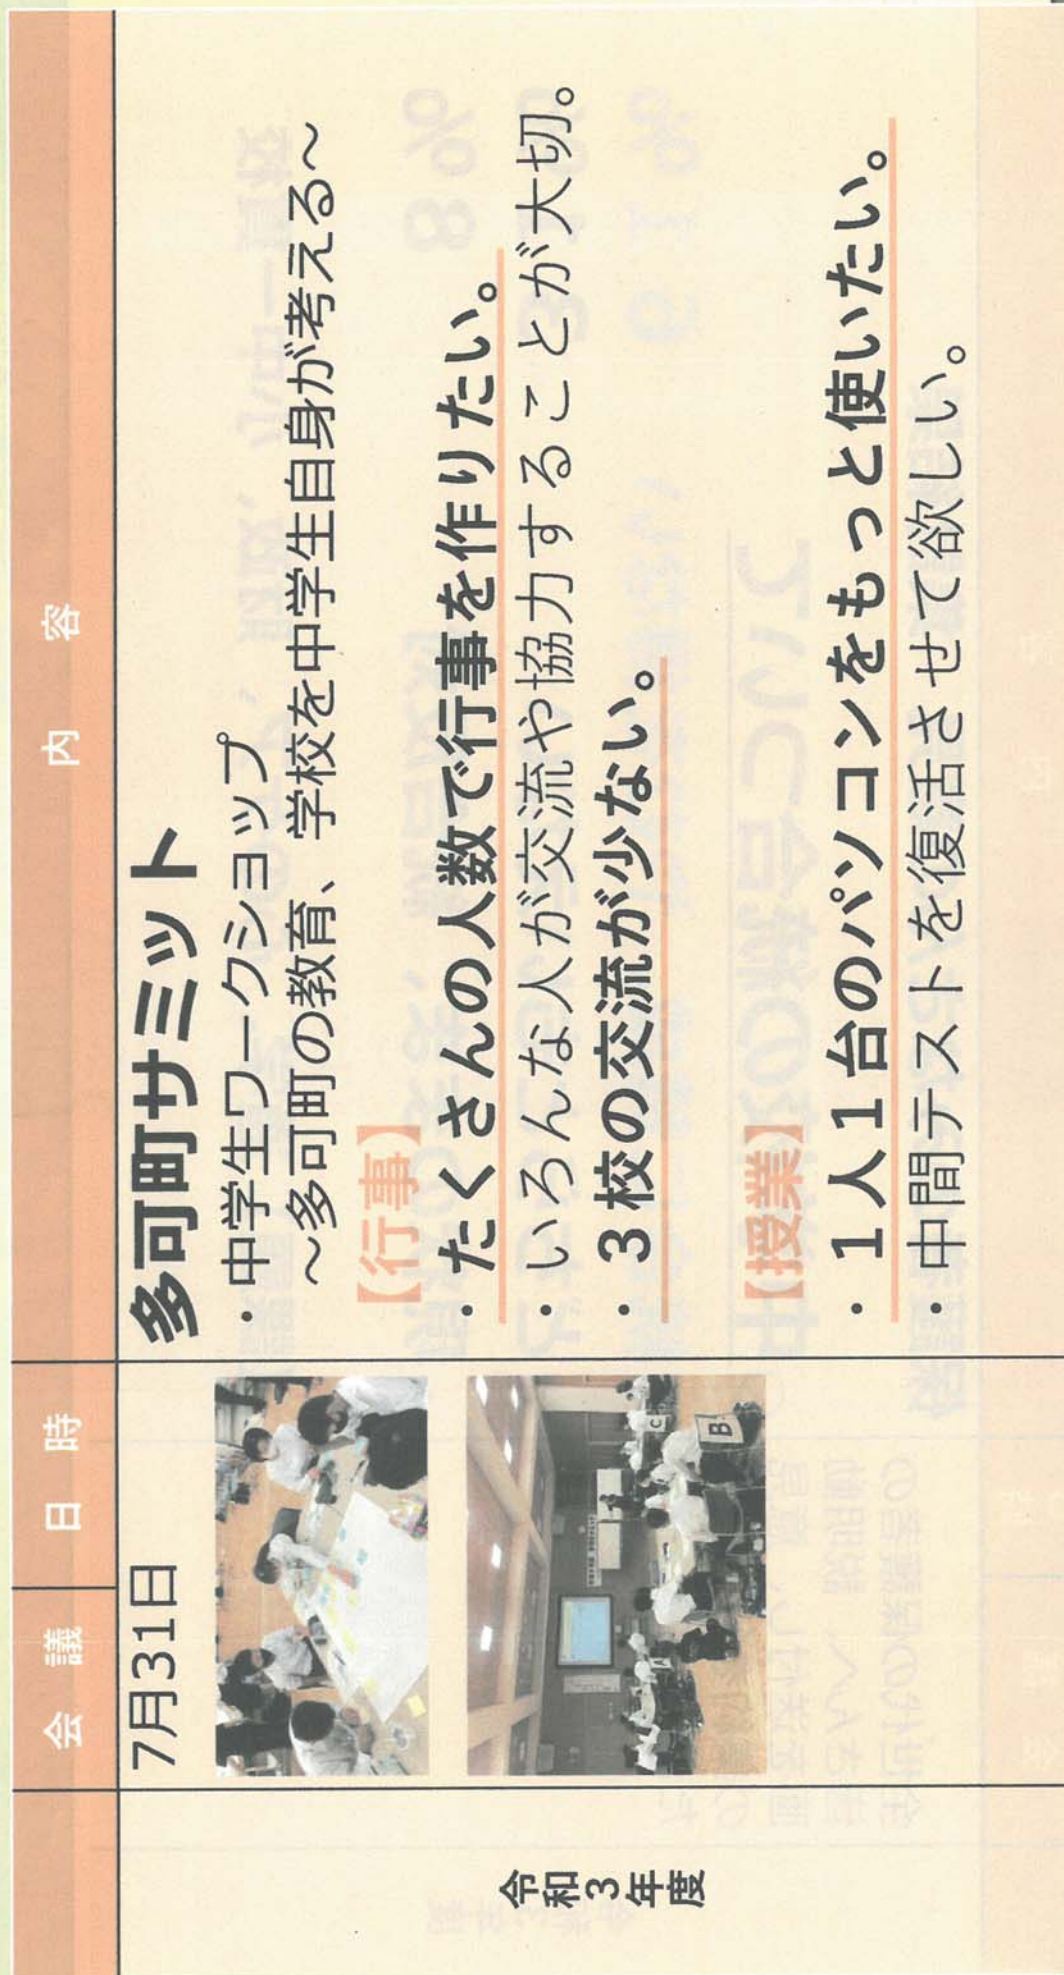 会議
日時
内容
令和3年度
7月31日
多可町サミット
・中学生ワークショップ
～多可町の教育、学校を中学生自身が考える～
【行事】
・たくさんの人数で行事を作りたい。
・いろんな人が交流や協力することが大切。
・3校の交流が少ない。
【授業】
・1人1台のパソコンをもっと使いたい。
・中間テストを復活させて欲しい。
A
B
C